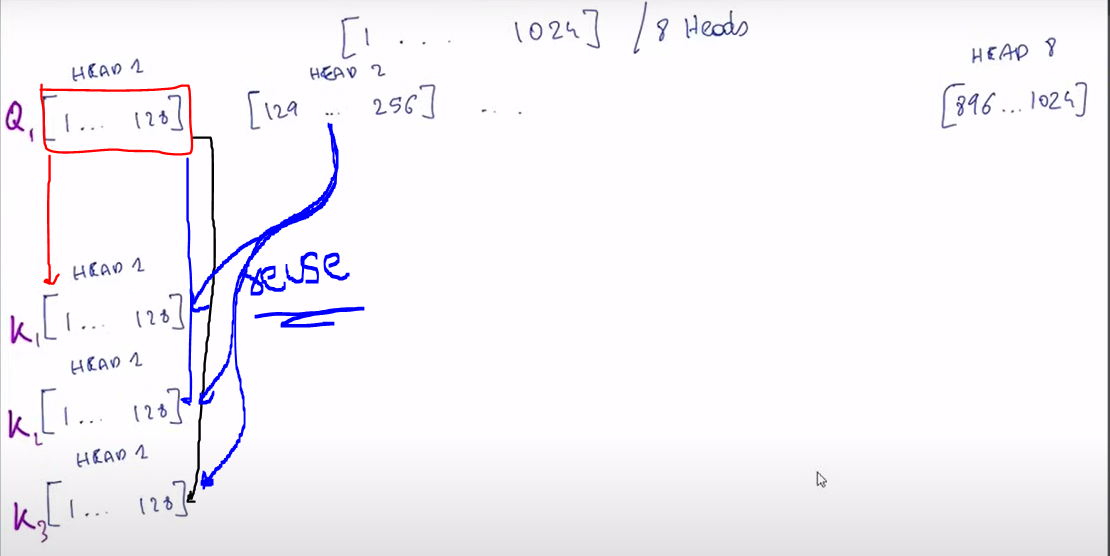 [1 . . . 1024] / 8 Heads
HEAD 1 HEAD 2 HEAD 8
Q1 [1... 128] [129 ... 256] .... [896...1024]
reuse
HEAD 1
K1 [1... 128]
HEAD 1
K2 [1... 128]
HEAD 1
K3 [1... 128]